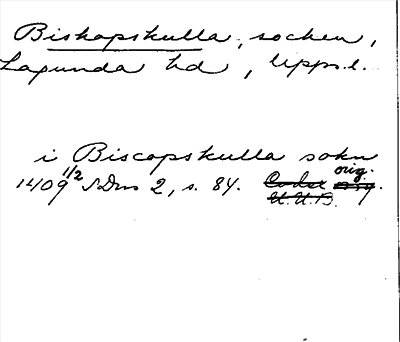 Biskopskulla, socken,
Lagunda hd, Upps.l.
i Biscopskulla sokn
1409 1/2 SDns 2, s. 84. Codex orig. orig.
U.U.B.